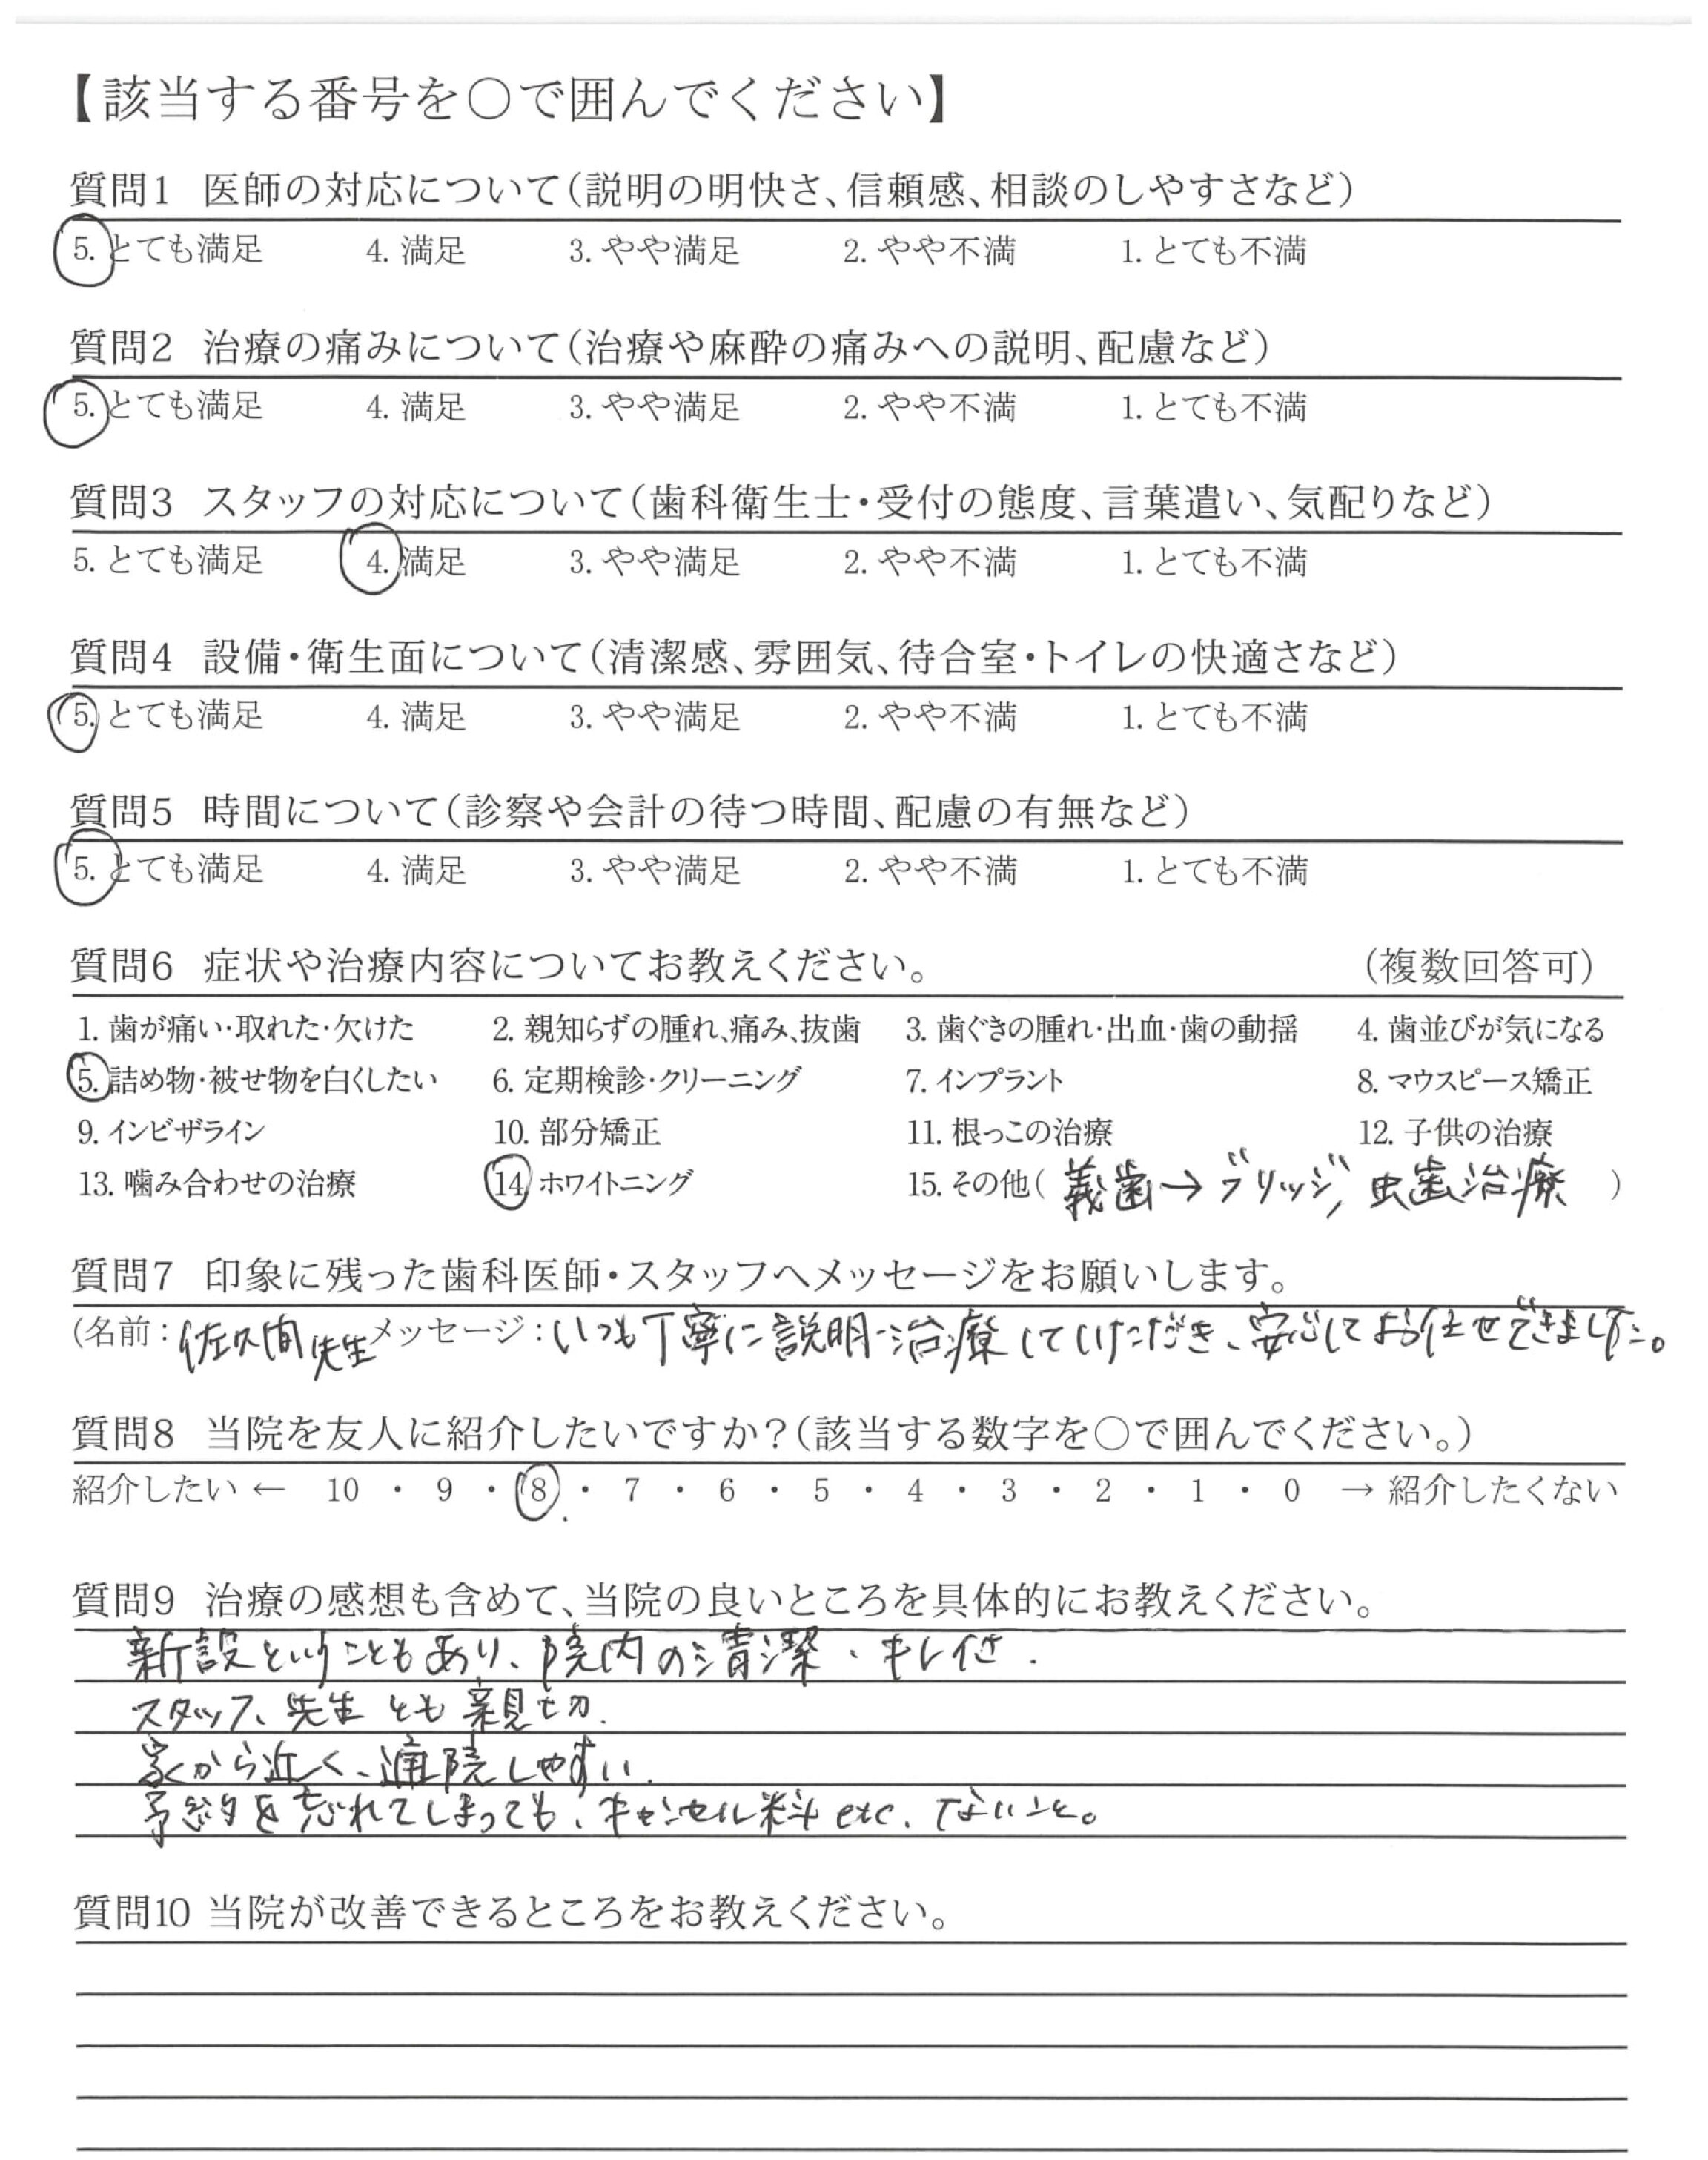 【該当する番号を○で囲んでください】
質問1 医師の対応について(説明の明快さ、信頼感、相談のしやすさなど)
5. とても満足 4. 満足 3. やや満足 2. やや不満 1. とても不満
質問2 治療の痛みについて(治療や麻酔の痛みへの説明、配慮など)
5. とても満足 4. 満足 3. やや満足 2. やや不満 1. とても不満
質問3 スタッフの対応について(歯科衛生士・受付の態度、言葉遣い、気配りなど)
5. とても満足 4. 満足 3. やや満足 2. やや不満 1. とても不満
質問4 設備・衛生面について(清潔感、雰囲気、待合室・トイレの快適さなど)
5. とても満足 4. 満足 3. やや満足 2. やや不満 1. とても不満
質問5 時間について(診察や会計の待つ時間、配慮の有無など)
5. とても満足 4. 満足 3. やや満足 2. やや不満 1. とても不満
質問6 症状や治療内容についてお教えください。 (複数回答可)
1. 歯が痛い・取れた・欠けた 2. 親知らずの腫れ、痛み、抜歯 3. 歯ぐきの腫れ・出血・歯の動揺 4. 歯並びが気になる
5. 詰め物・被せ物を白くしたい 6. 定期検診・クリーニング 7. インプラント 8. マウスピース矯正
9. インビザライン 10. 部分矯正 11. 根っこの治療 12. 子供の治療
13. 噛み合わせの治療 14. ホワイトニング 15. その他( 義歯→ブリッジ, 虫歯治療 )
質問7 印象に残った歯科医師・スタッフへメッセージをお願いします。
(名前:佐久間先生 メッセージ:いつも丁寧に説明・治療していただき、安心してお任せできました。
質問8 当院を友人に紹介したいですか?(該当する数字を○で囲んでください。)
紹介したい ← 10 ・ 9 ・ 8 ・ 7 ・ 6 ・ 5 ・ 4 ・ 3 ・ 2 ・ 1 ・ 0 → 紹介したくない
質問9 治療の感想も含めて、当院の良いところを具体的にお教えください。
新設ということもあり、院内の清潔・キレイさ.
スタッフ、先生とも親切.
家から近く、通院しやすい.
予約を忘れてしまっても、キャンセル料etc. ないこと。
質問10 当院が改善できるところをお教えください。